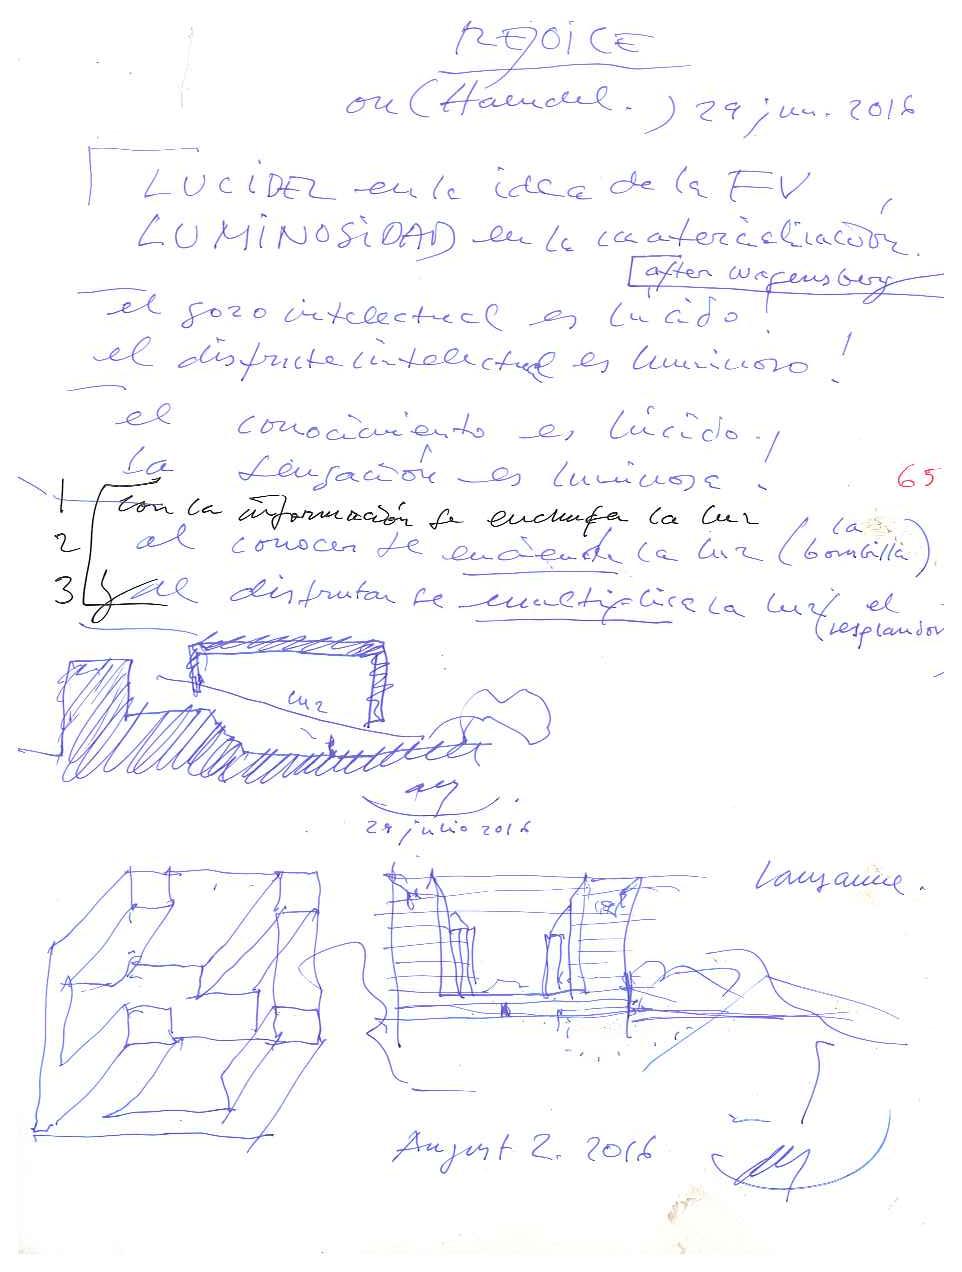 REJOICE
on (Haendel.) 29 jun. 2016
LUCIDEZ en la idea de la FV
LUMINOSIDAD en la materialización.
after Wagensberg
el gozo intelectual es lúcido!
el disfrute intelectual es luminoso!
el conocimiento es lúcido!
la sensación es luminosa!
65
1 con la información se enchufa la luz
2 al conocer se enciende la luz (la bombilla)
3 y al disfrutar se multiplica la luz (el resplandor
luz
29 julio 2016
Lausanne.
August 2. 2016